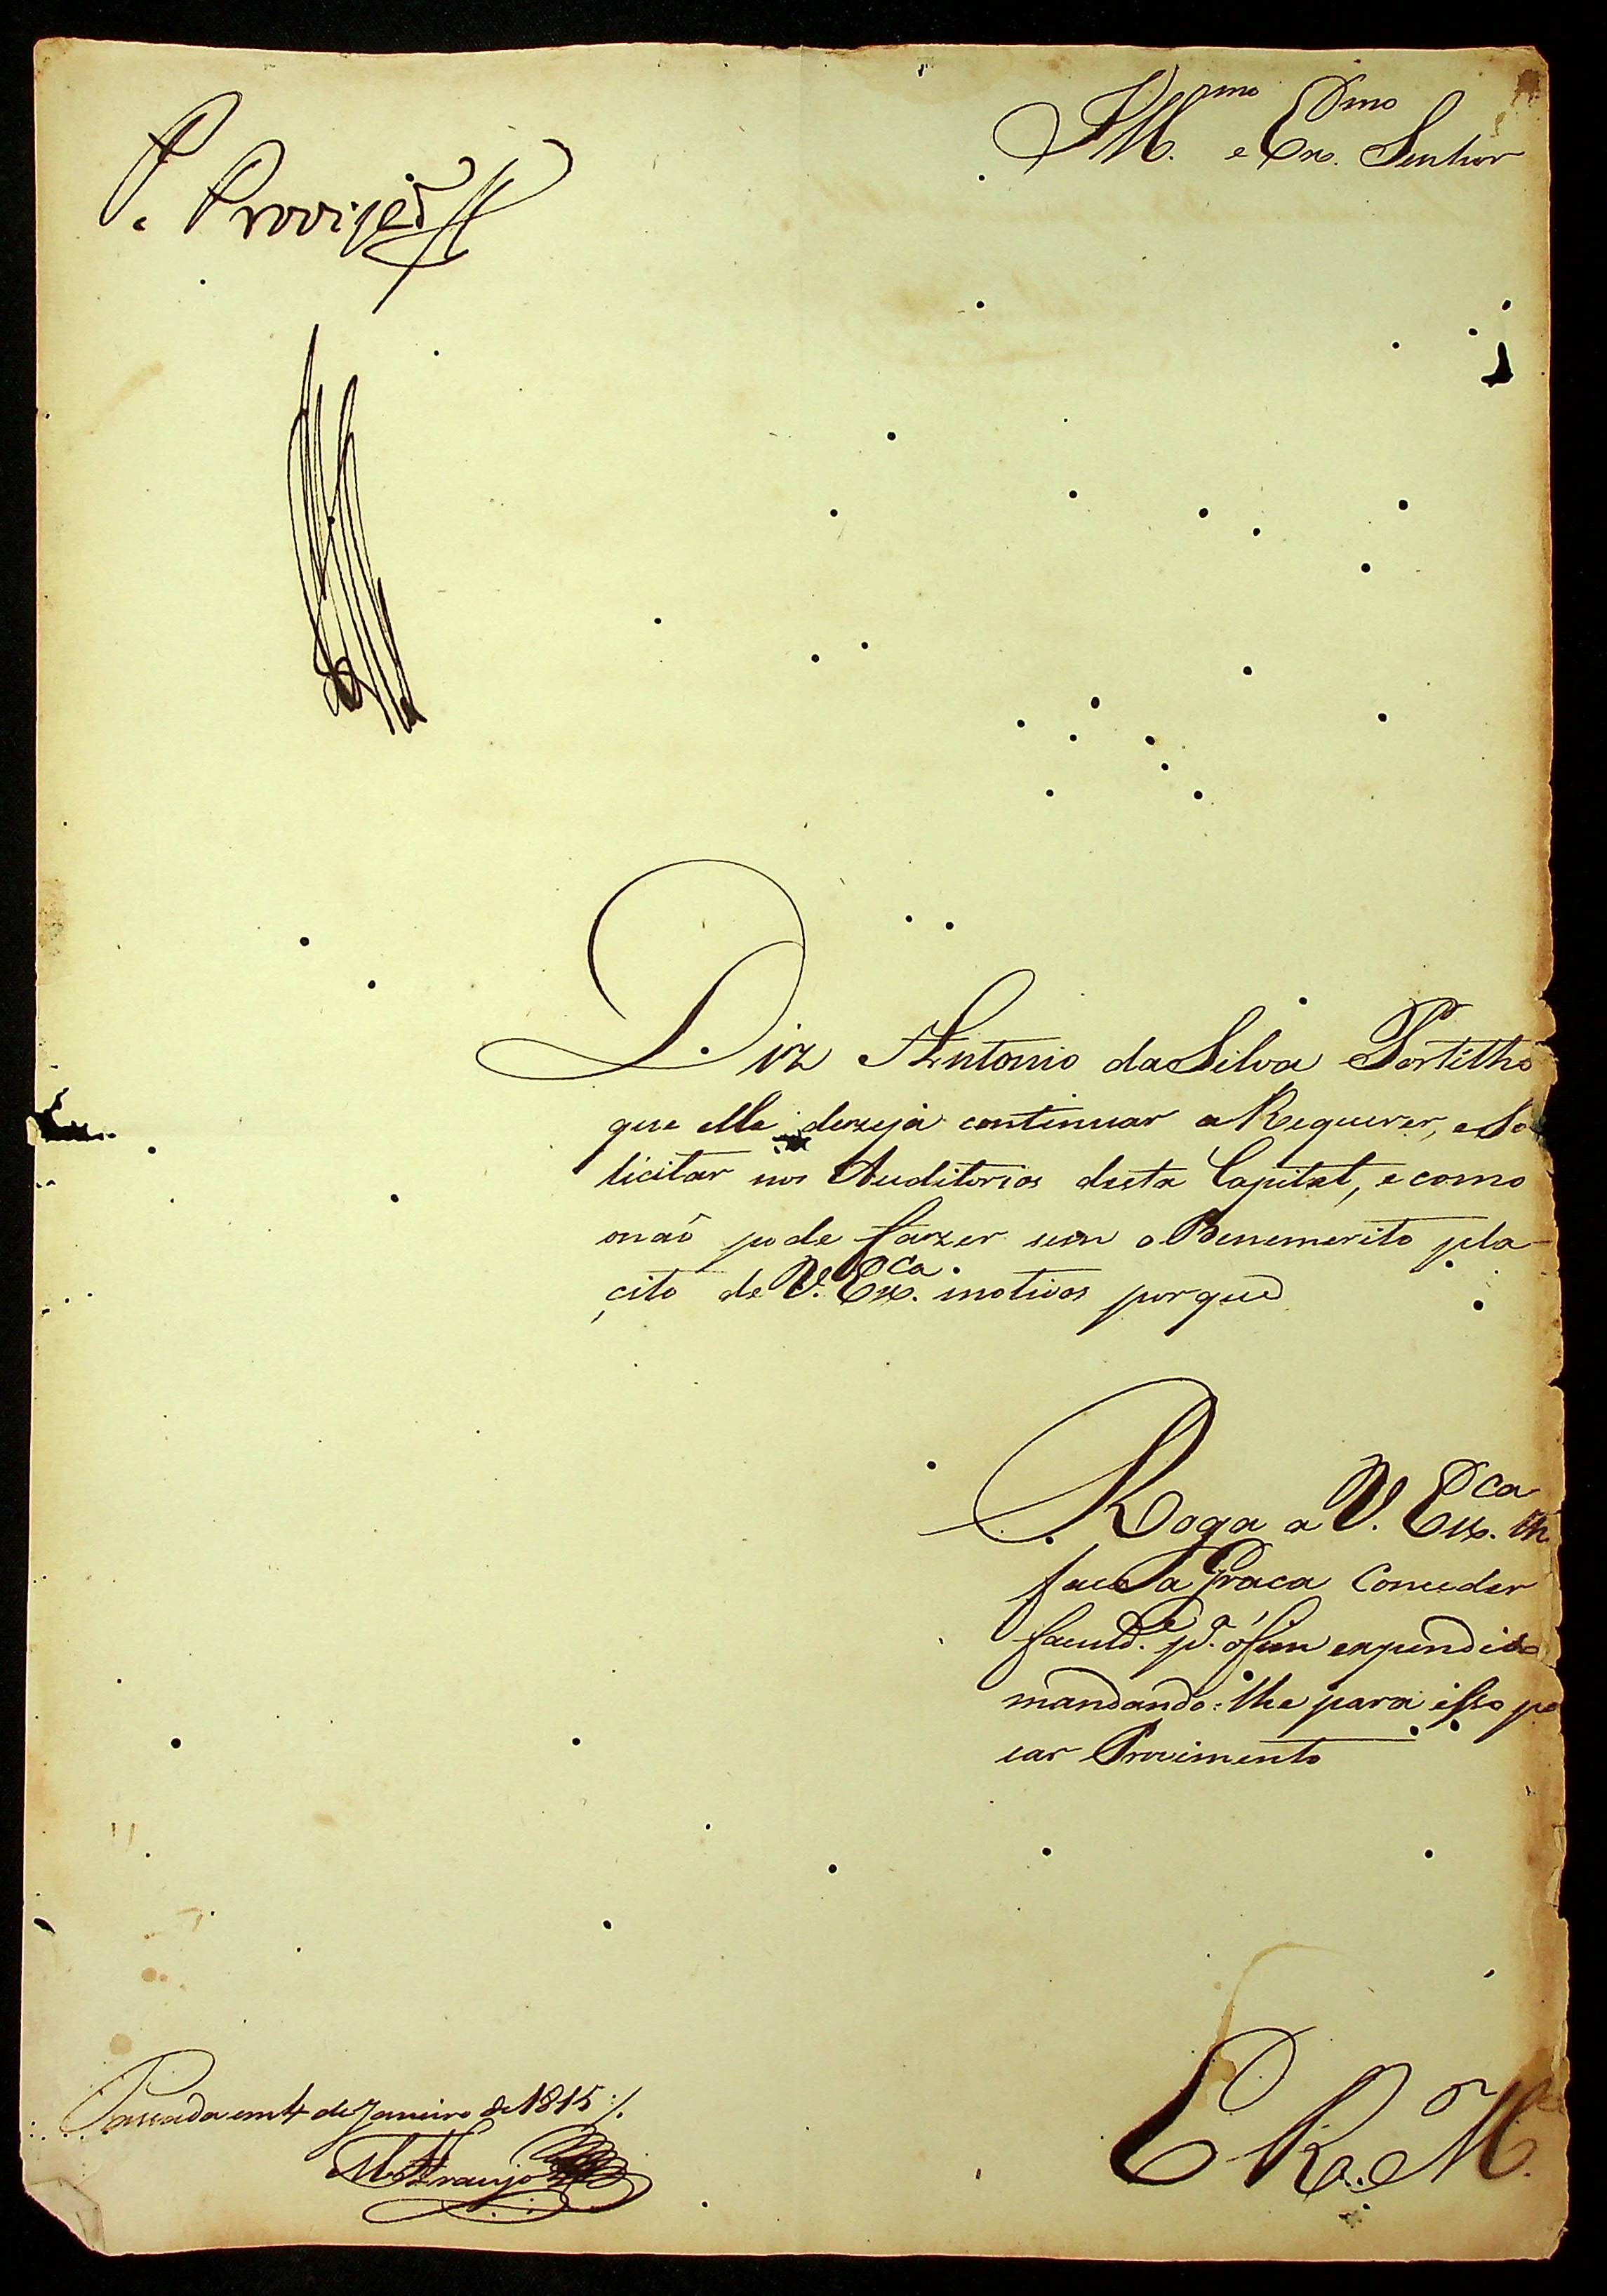 Ill.mo e Ex.mo Senhor
P. Provizaõ
Diz Antonio da Silva Portilho
que elle dezeja continuar a Requerer, e So
licitar nos Auditorios desta Capital, e como
onaõ pode fazer sem o Benemerito pla-
cito de V. Ex.ca motivos porque
Roga a V. Ex.ca lh
faca a Graca Conceder
faculd.e p.a o fim expendido
mandando-lhe para isso pa
sar Provimento
E R. M.ce
Passada em 4 de Janeiro de 1815 ./.
Araujo